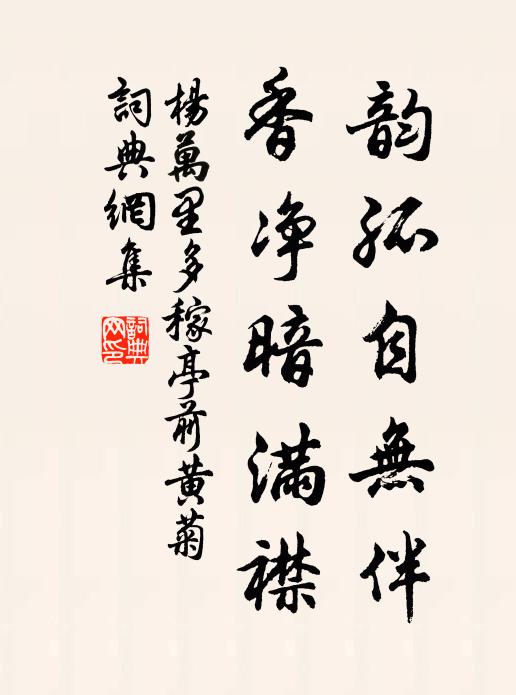 韵孤自無伴
香净暗滿襟
楊萬里多稼亭前黄菊
詞典網集
詞典网印